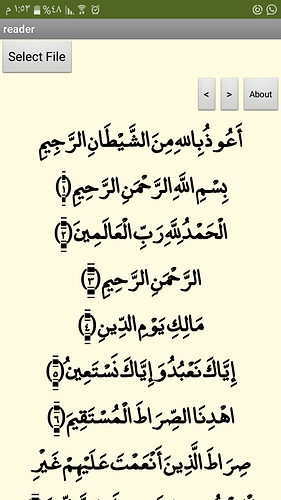 ١:٥٣ م ٤٨%
reader
Select File
< > About
أَعُوذُ بِاللهِ مِنَ الشَّيْطَانِ الرَّجِيمِ
بِسْمِ اللَّهِ الرَّحْمَنِ الرَّحِيمِ ﴿١﴾
الْحَمْدُ لِلَّهِ رَبِّ الْعَالَمِينَ ﴿٢﴾
الرَّحْمَنِ الرَّحِيمِ ﴿٣﴾
مَالِكِ يَوْمِ الدِّينِ ﴿٤﴾
إِيَّاكَ نَعْبُدُ وَإِيَّاكَ نَسْتَعِينُ ﴿٥﴾
اهْدِنَا الصِّرَاطَ الْمُسْتَقِيمَ ﴿٦﴾
صِرَاطَ الَّذِينَ أَنْعَمْتَ عَلَيْهِمْ غَيْرِ